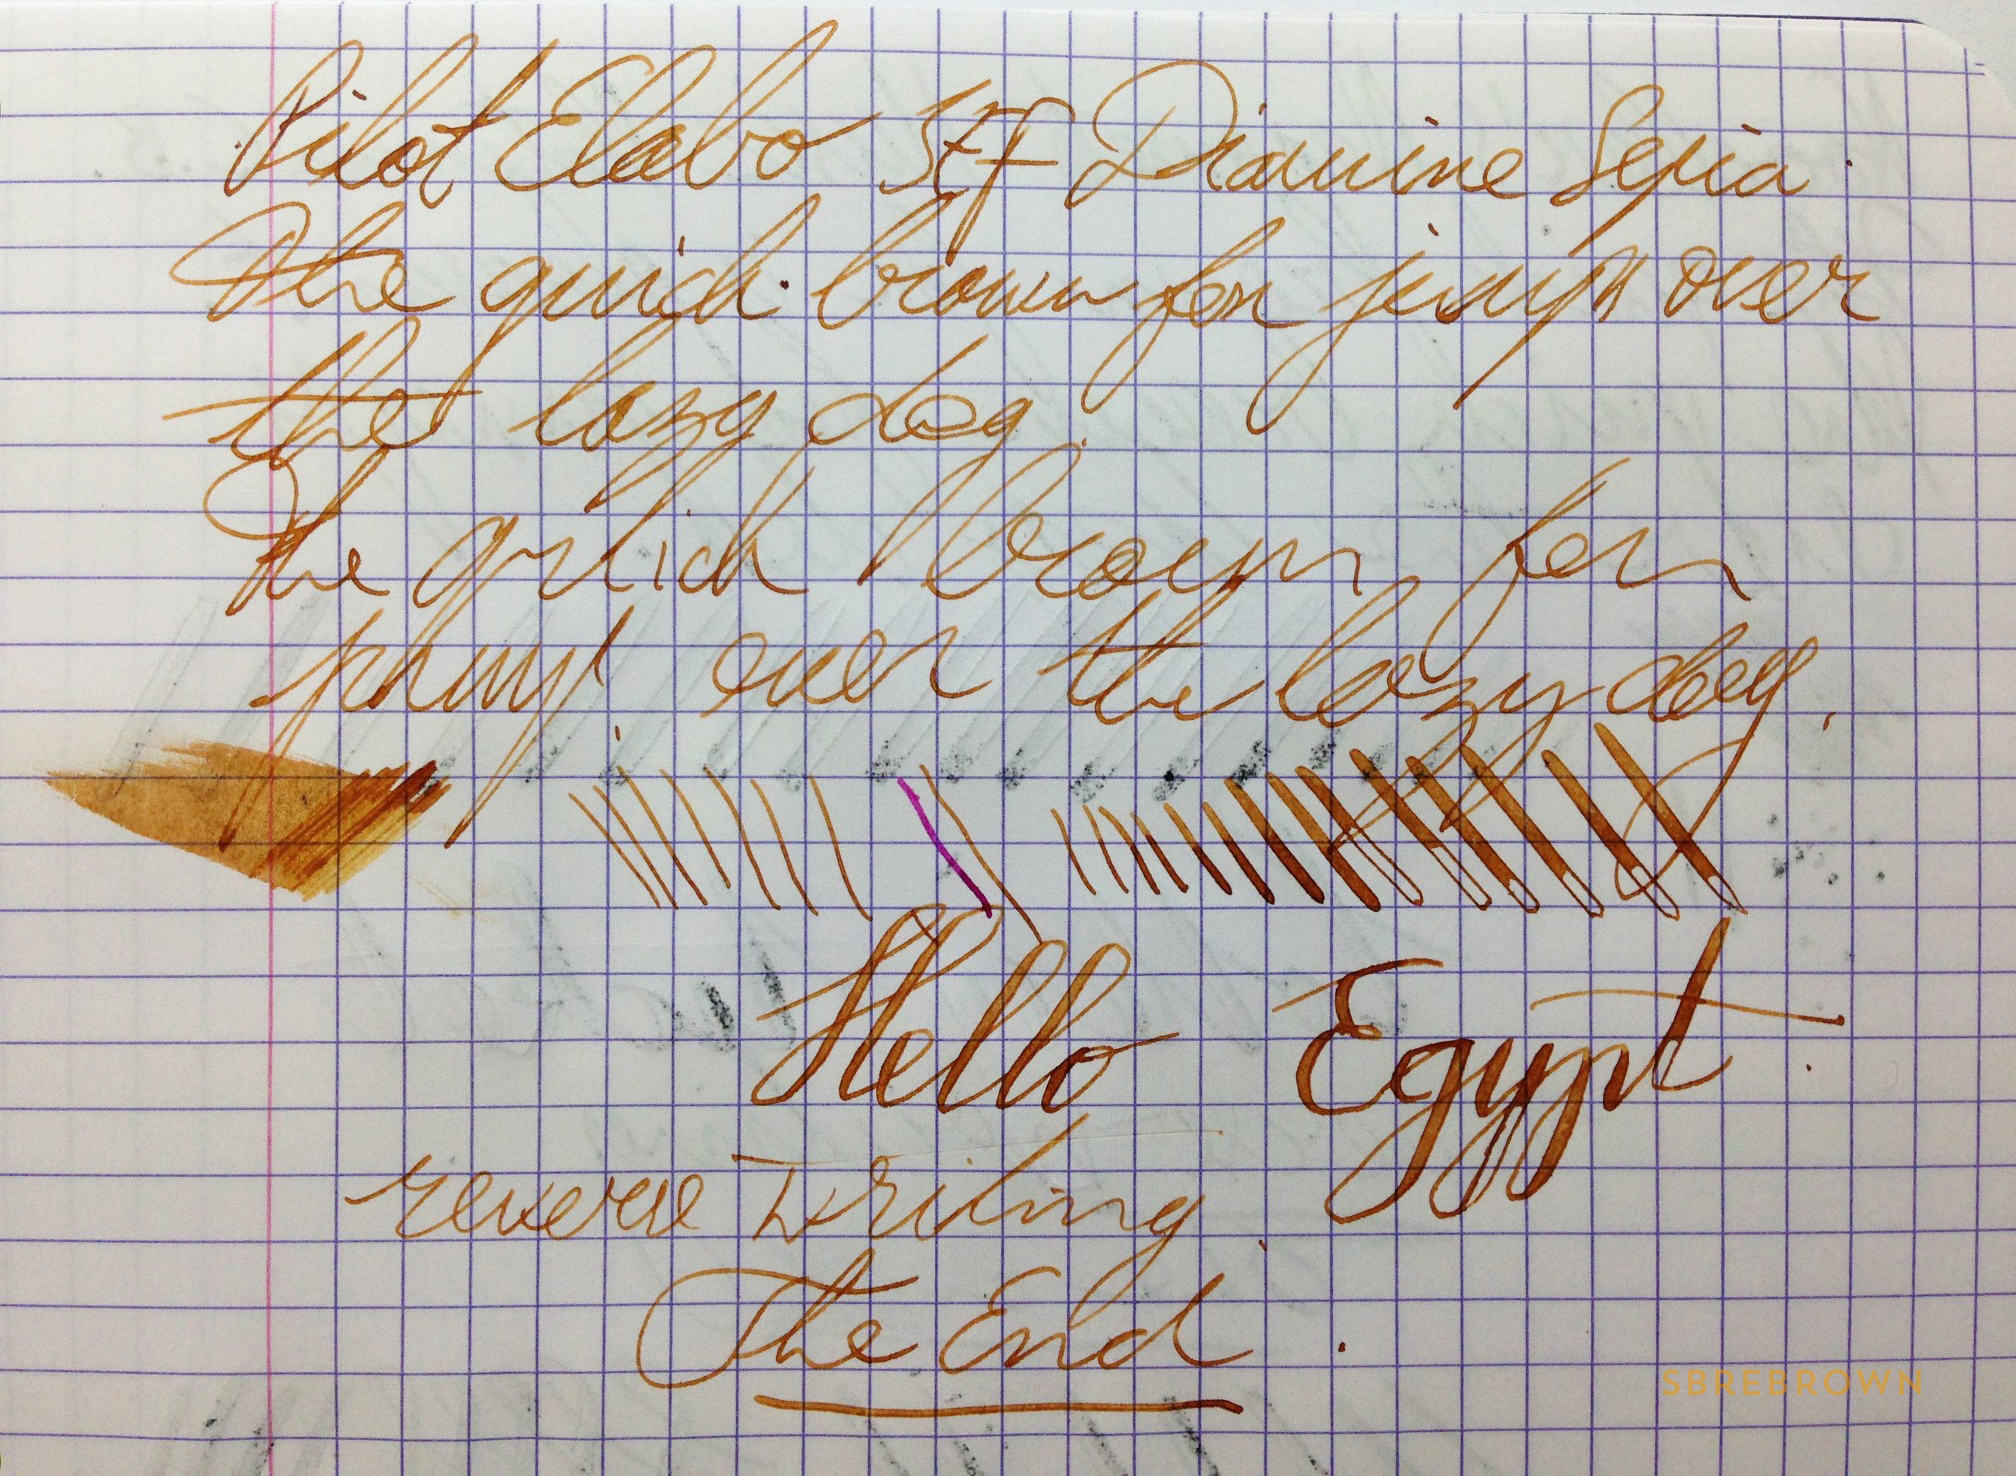 Pilot Elabo SEF Diamine Sepia
The quick brown fox jumps over
the lazy dog.
The quick brown fox
jump over the lazy dog.
Hello Egypt
reverse writing
The End
SBREBROWN